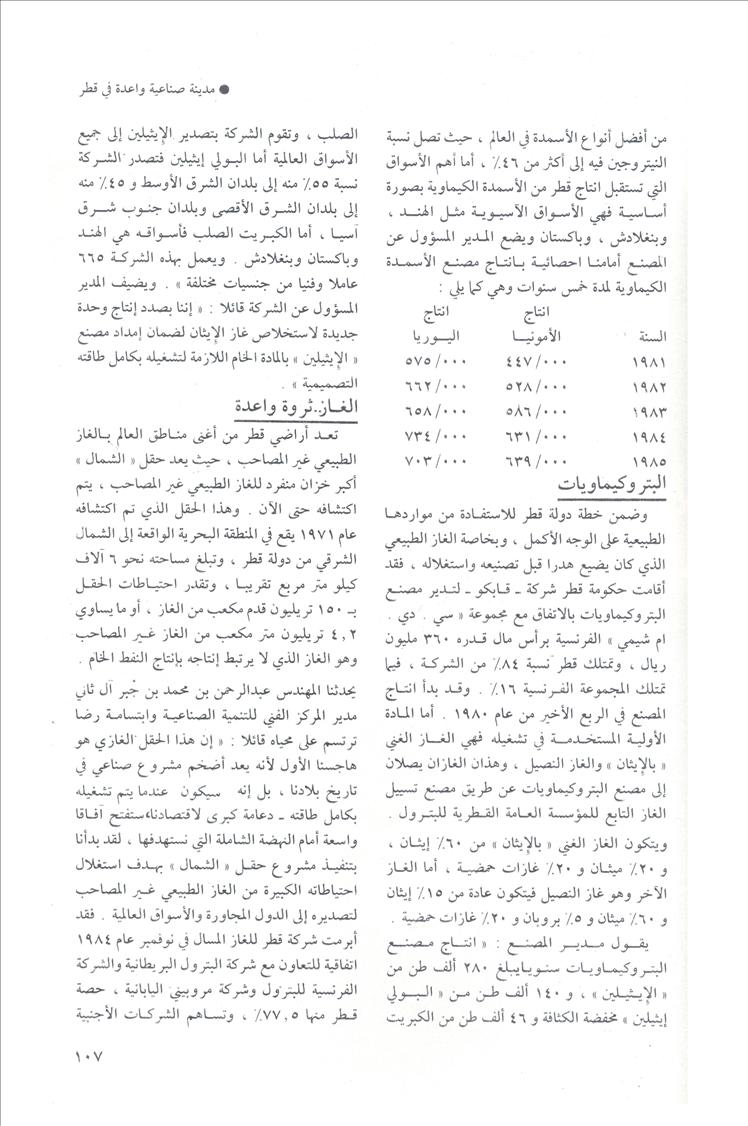 ● مدينة صناعية واعدة في قطر
من أفضل أنواع الأسمدة في العالم ، حيث تصل نسبة
النيتروجين فيه إلى أكثر من ٤٦٪ ، أما أهم الأسواق
التي تستقبل انتاج قطر من الأسمدة الكيماوية بصورة
أساسية فهي الأسواق الآسيوية مثل الهند ،
وبنغلادش ، وباكستان ويضع المدير المسؤول عن
المصنع أمامنا احصائية بانتاج مصنع الأسمدة
الكيماوية لمدة خمس سنوات وهي كما يلي :
انتاج انتاج
السنة الأمونيا اليوريا
١٩٨١ ٤٤٧/٠٠٠ ٥٧٥/٠٠٠
١٩٨٢ ٥٢٨/٠٠٠ ٦٦٢/٠٠٠
١٩٨٣ ٥٨٦/٠٠٠ ٦٥٨/٠٠٠
١٩٨٤ ٦٣١/٠٠٠ ٧٣٤/٠٠٠
١٩٨٥ ٦٣٩/٠٠٠ ٧٠٣/٠٠٠
البتروكيماويات
وضمن خطة دولة قطر للاستفادة من مواردها
الطبيعية على الوجه الأكمل ، وبخاصة الغاز الطبيعي
الذي كان يضيع هدرا قبل تصنيعه واستغلاله ، فقد
أقامت حكومة قطر شركة ـ قابكو ـ لتدير مصنع
البتروكيماويات بالاتفاق مع مجموعة « سي . دي .
ام شيمي » الفرنسية برأس مال قدره ٣٦٠ مليون
ريال ، وتمتلك قطر نسبة ٨٤٪ من الشركة ، فيما
تمتلك المجموعة الفرنسية ١٦٪ . وقد بدأ انتاج
المصنع في الربع الأخير من عام ١٩٨٠ . أما المادة
الأولية المستخدمة في تشغيله فهي الغاز الغني
« بالإيثان » والغاز النصيل ، وهذان الغازان يصلان
إلى مصنع البتروكيماويات عن طريق مصنع تسييل
الغاز التابع للمؤسسة العامة القطرية للبترول .
ويتكون الغاز الغني « بالإيثان » من ٦٠٪ إيثان ،
و ٢٠٪ ميثان و ٢٠٪ غازات حمضية ، أما الغاز
الآخر وهو غاز النصيل فيتكون عادة من ١٥٪ إيثان
و ٦٠٪ ميثان و ٥٪ بروبان و ٢٠٪ غازات حمضية .
يقول مدير المصنع : « انتاج مصنع
البتروكيماويات سنويايبلغ ٢٨٠ ألف طن من
« الإيثيلين » ، و ١٤٠ ألف طن من « البولي
إيثيلين » مخفضة الكثافة و ٤٦ ألف طن من الكبريت
الصلب ، وتقوم الشركة بتصدير الإيثيلين إلى جميع
الأسواق العالمية أما البولي إيثيلين فتصدر الشركة
نسبة ٥٥٪ منه إلى بلدان الشرق الأوسط و ٤٥٪ منه
إلى بلدان الشرق الأقصى وبلدان جنوب شرق
آسيا ، أما الكبريت الصلب فأسواقه هي الهند
وباكستان وبنغلادش . ويعمل بهذه الشركة ٦٦٥
عاملا وفنيا من جنسيات مختلفة » . ويضيف المدير
المسؤول عن الشركة قائلا : « إننا بصدد إنتاج وحدة
جديدة لاستخلاص غاز الإيثان لضمان إمداد مصنع
« الإيثيلين » بالمادة الخام اللازمة لتشغيله بكامل طاقته
التصميمية » .
الغاز.ثروة واعدة
تعد أراضي قطر من أغنى مناطق العالم بالغاز
الطبيعي غير المصاحب ، حيث يعد حقل « الشمال »
أكبر خزان منفرد للغاز الطبيعي غير المصاحب ، يتم
اكتشافه حتى الآن . وهذا الحقل الذي تم اكتشافه
عام ١٩٧١ يقع في المنطقة البحرية الواقعة إلى الشمال
الشرقي من دولة قطر ، وتبلغ مساحته نحو ٦ آلاف
كيلو متر مربع تقريبا ، وتقدر احتياطات الحقل
بـ ١٥٠ تريليون قدم مكعب من الغاز ، أو ما يساوي
٤,٢ تريليون متر مكعب من الغاز غير المصاحب
وهو الغاز الذي لا يرتبط إنتاجه بإنتاج النفط الخام .
يحدثنا المهندس عبدالرحمن بن محمد بن جبر آل ثاني
مدير المركز الفني للتنمية الصناعية وابتسامة رضا
ترتسم على محياه قائلا : « إن هذا الحقل الغازي هو
هاجسنا الأول لأنه يعد أضخم مشروع صناعي في
تاريخ بلادنا ، بل إنه سيكون عندما يتم تشغيله
بكامل طاقته ـ دعامة كبرى لاقتصادنا،ستفتح آفاقا
واسعة أمام النهضة الشاملة التي نستهدفها ، لقد بدأنا
بتنفيذ مشروع حقل « الشمال » بهدف استغلال
احتياطاته الكبيرة من الغاز الطبيعي غير المصاحب
لتصديره إلى الدول المجاورة والأسواق العالمية . فقد
أبرمت شركة قطر للغاز المسال في نوفمبر عام ١٩٨٤
اتفاقية للتعاون مع شركة البترول البريطانية والشركة
الفرنسية للبترول وشركة مروبيني اليابانية ، حصة
قطر منها ٧٧,٥٪ ، وتساهم الشركات الأجنبية
١٠٧